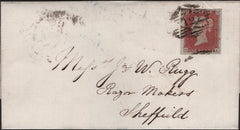 Messrs J & W. Ragg
Razor Makers
Sheffield